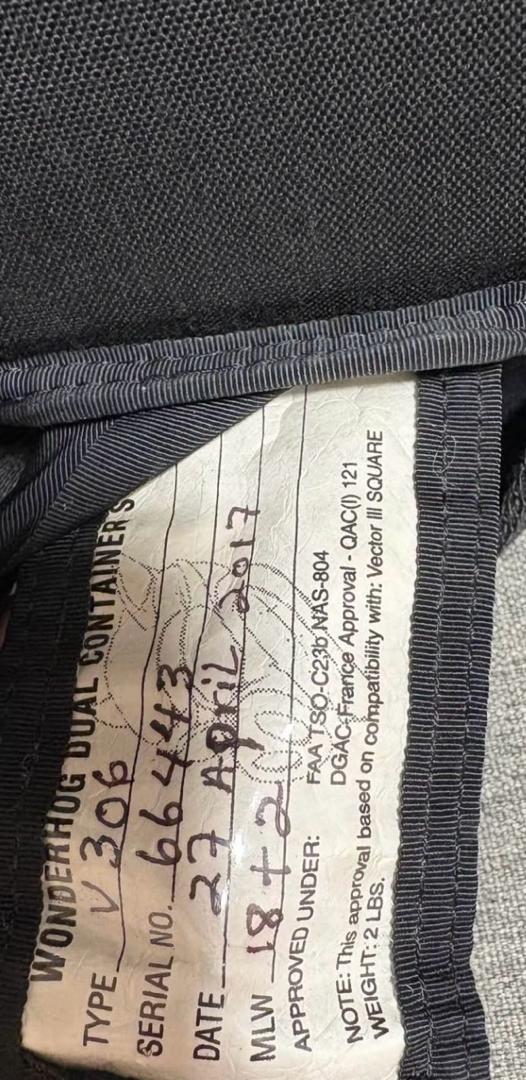 WONDERHOG DUAL CONTAINERS
TYPE V306
SERIAL NO. 66443
DATE 27 April 2017
MLW 18+2
APPROVED UNDER: FAA TSO-C23b NAS-804
DGAC-France Approval - QAC(I) 121
NOTE: This approval based on compatibility with: Vector III SQUARE
WEIGHT: 2 LBS.